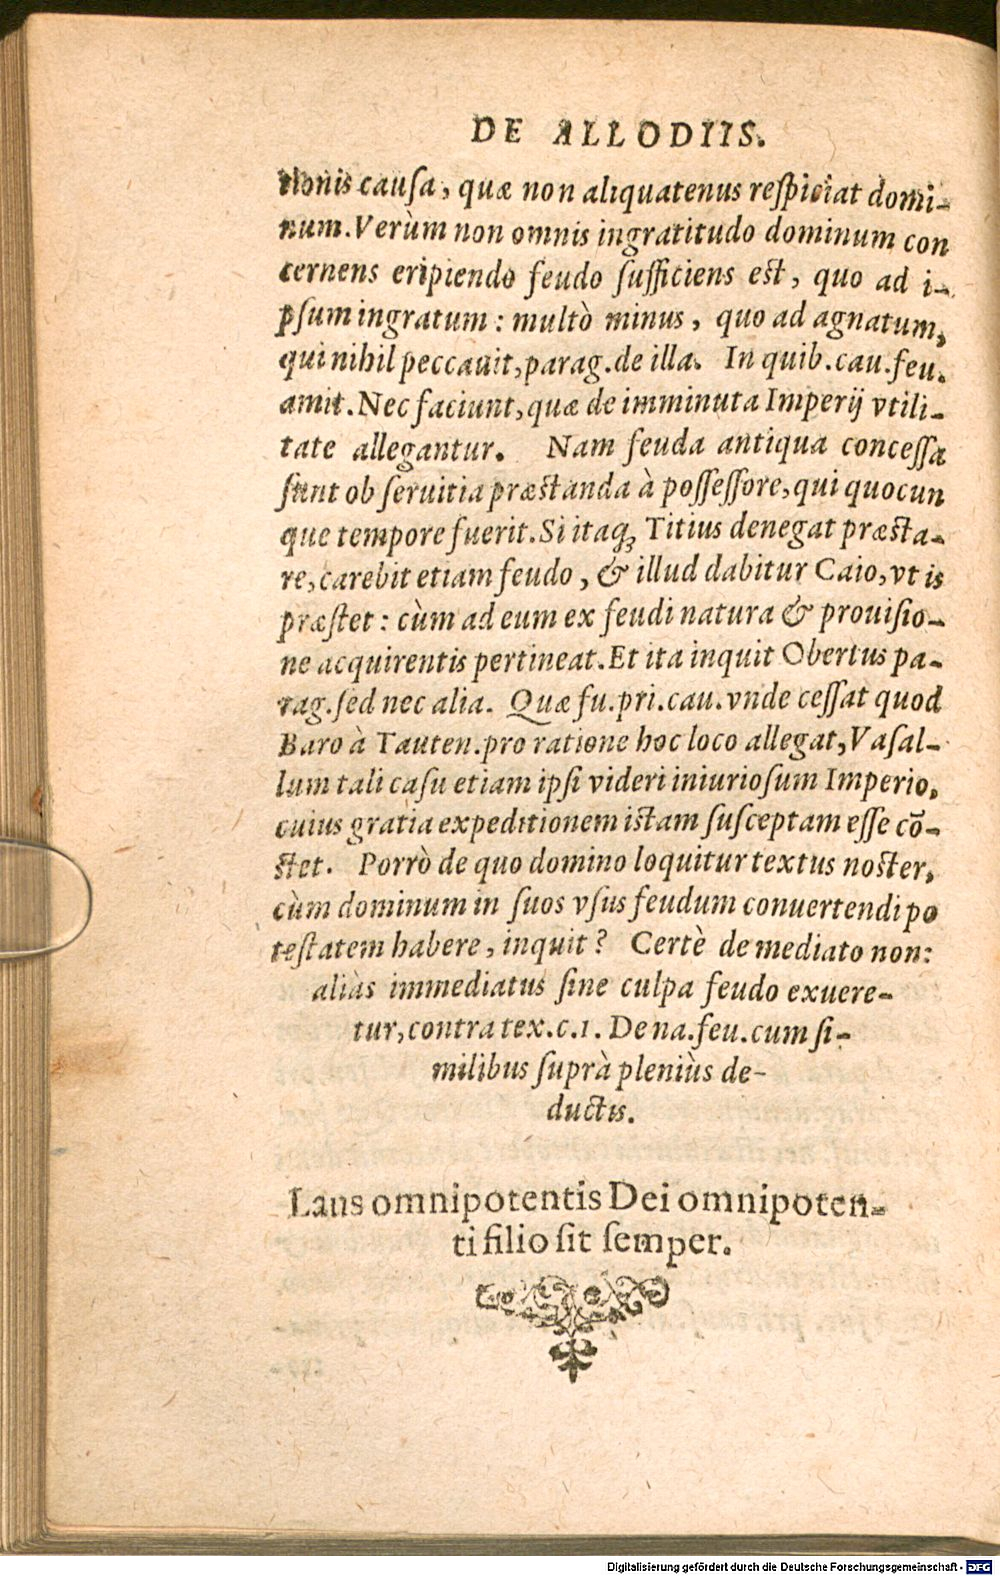 DE ALLODIIS.
tionis causa, quæ non aliquatenus reſpiciat domi-
num. Verùm non omnis ingratitudo dominum con
cernens eripiendo feudo ſufficiens eſt, quo ad i-
pſum ingratum: multò minus, quo ad agnatum,
qui nihil peccauit, parag. de illa. In quib. cau. feu.
amit. Nec faciunt, quæ de imminuta Imperij vtili-
tate allegantur. Nam feuda antiqua conceſſa
ſunt ob ſeruitia præſtanda à poſſeſſore, qui quocun
que tempore fuerit. Si itaqꝫ Titius denegat præſta-
re, carebit etiam feudo, & illud dabitur Caio, vt is
præſtet: cùm ad eum ex feudi natura & prouiſio-
ne acquirentis pertineat. Et ita inquit Obertus pa-
rag. ſed nec alia. Quæ fu. pri. cau. vnde ceſſat quod
Baro à Tauten. pro ratione hoc loco allegat, Vaſal-
lum tali caſu etiam ipſi videri iniurioſum Imperio,
cuius gratia expeditionem iſtam ſuſceptam eſſe cō-
ſtet. Porrò de quo domino loquitur textus noſter,
cùm dominum in ſuos vſus feudum conuertendi po
teſtatem habere, inquit? Certè de mediato non:
aliàs immediatus ſine culpa feudo exuere-
tur, contra tex. c. 1. De na. feu. cum ſi-
milibus ſuprà pleniùs de-
ductis.
Laus omnipotentis Dei omnipoten-
ti filio ſit ſemper.
Digitalisierung gefördert durch die Deutsche Forschungsgemeinschaft - DFG